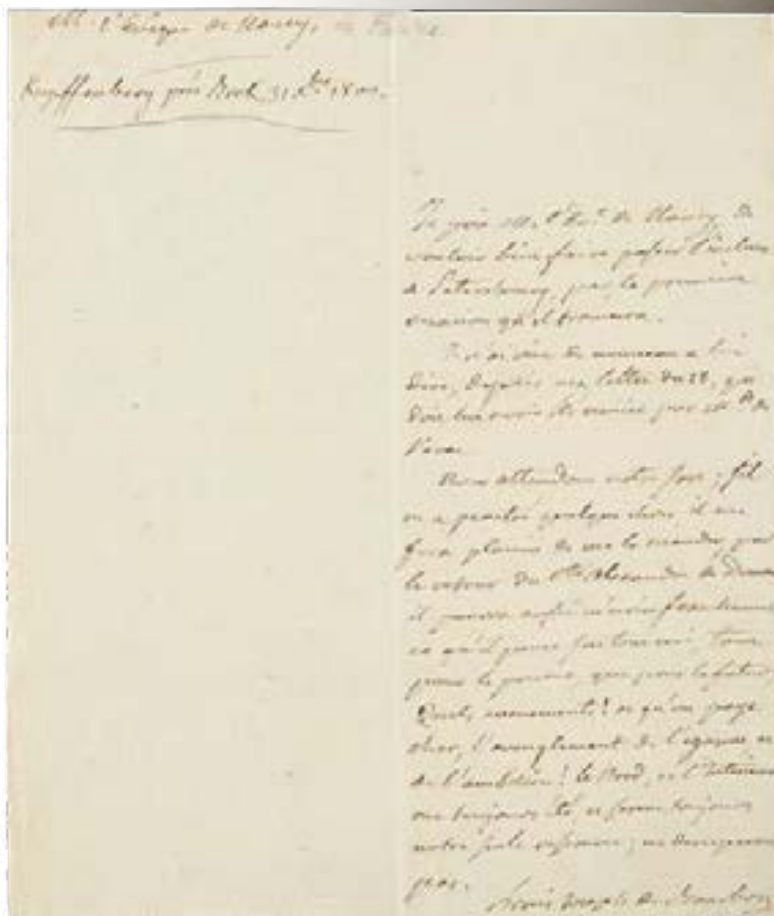 M. l'Evêque de Nancy,
Kupffenberg près Bruck, 31 Xbre 18
Je prie M. l'Ev. de Nancy de
vouloir bien faire passer l'incluse
à Petersbourg, par la premiere
occasion qu'il trouvera.
Je n'ai rien de nouveau à lui
dire, depuis ma lettre du 28, qui
doit lui avoir été remise par M. de
attendons notre sort ; s'il
en a quelque chose il me
fera plaisir de me le mander par
le retour du Alexandre de
il pourra aussi m'ecrire franchement
ce qu'il pense sur tout ceci, tant
pour le present, que pour le futur.
Quels evenements ! et qu'on paye
cher, l'aveuglement de l'egoisme et
de l'ambition ! le Nord, et l'interieur
ont toujours été, et seront toujours
notre seule esperance ;
pas.
Louis Joseph de Bourbon